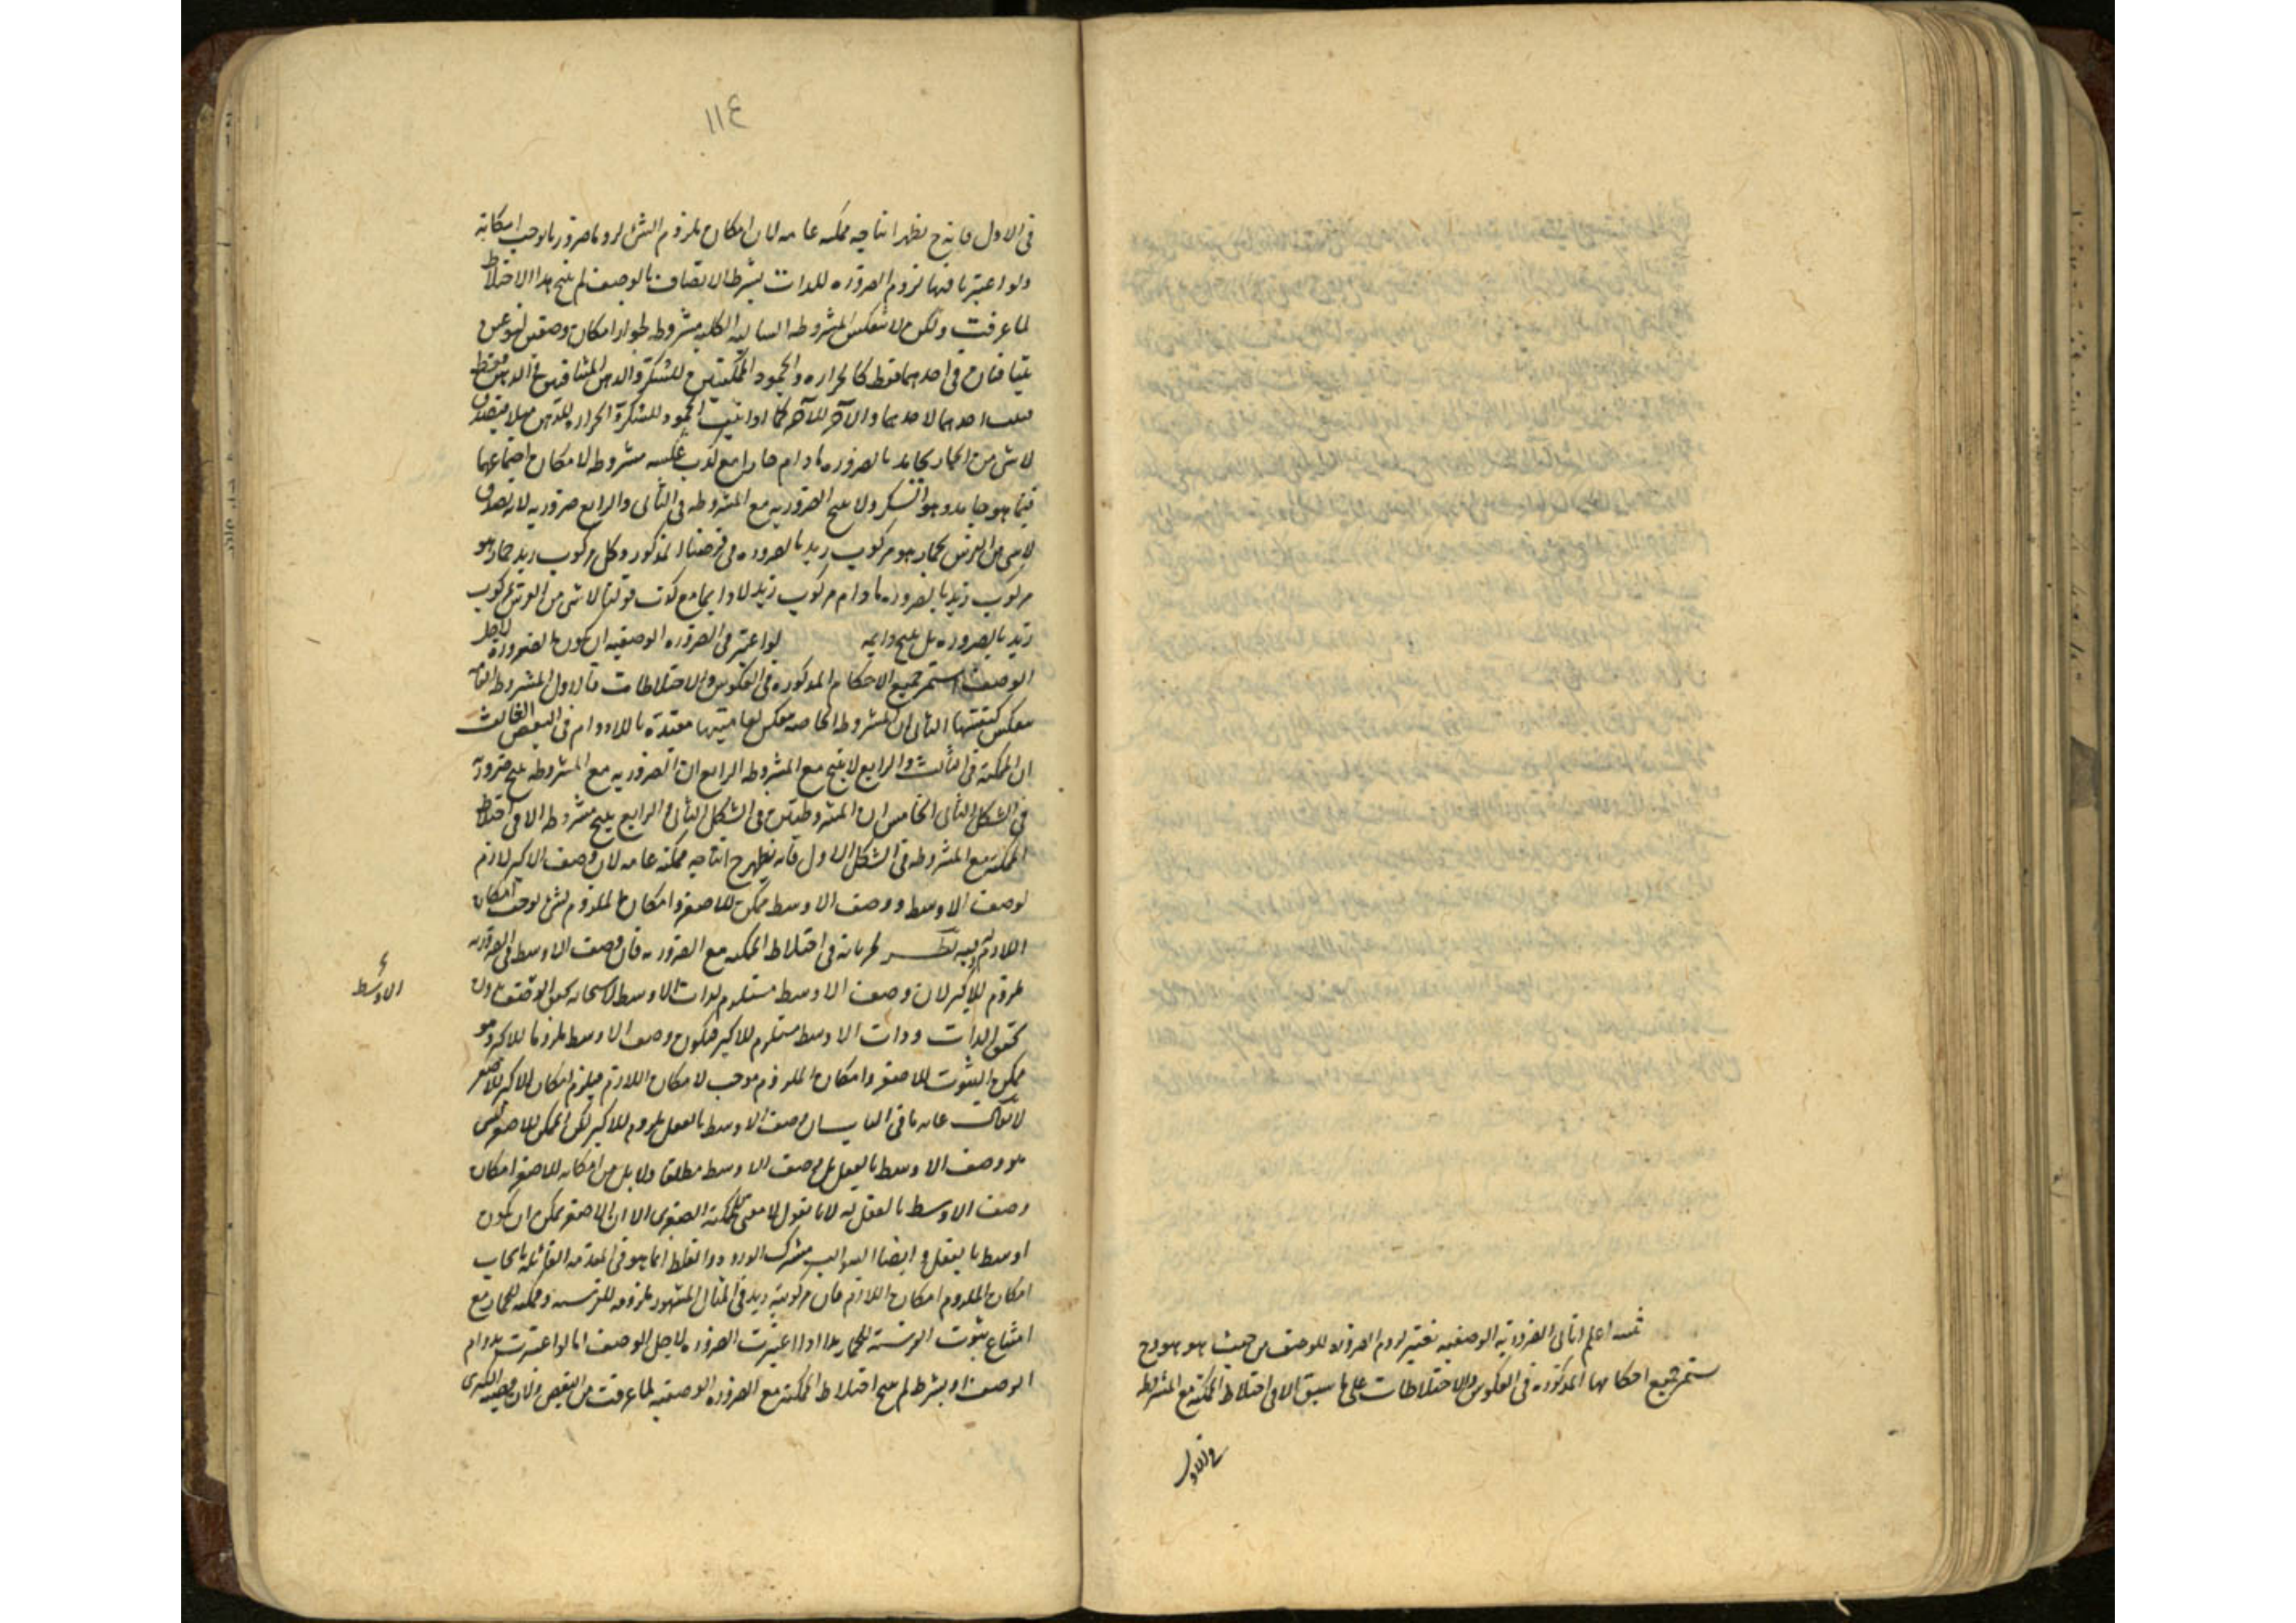 ثمـ اعلم انا فى الضرورية الوصفيه نعتبر لزوم الضرورة للوصف من حيث هو هو وح
ستمر جميع احكامها المذكوره فى العكوس والاختلاطات على ما سبق الا فى اختلاط الممكنة مع المشروطة
فى الاول
١١٤
فى الاول فانه ح يظهر انتاجه ممكنه عامه لان امكان ملزوم الشى لزوما ضروريا يوجب امكانه
ولو اعتبرنا فيها لزوم الضروره للذات بشرط الاتصاف بالوصف لم ينتج هذا الاختلاط
لما عرفت ولكن لا تنعكس المشروطه السالبه الكليه مشروطه لجواز امكان وصفين لنوعين
يتنافيان فى احدهما فقط كالحراره والجمود الممكنتين للسكر والدهن المتنافيين فى الدهن فقط
احدهما لاحدهما والآخر للآخر كما اذا ثبت الجمود للسكر والحرارة للدهن
لاشى من الحار بجامد بالضروره مادام حارا مع كذب عكسه مشروطه لامكان اجتماعهما
فيما هو جامد وهو السكر ولا ينتج الضروريه مع المشروطه فى الثانى والرابع ضروريه لانه يصدق
لاشى من الفرس بحمار هو مركوب زيد بالضروره فى فرضنا المذكور وكل مركوب زيد حمار هو
مركوب زيد بالضروره مادام مركوب زيد لا دايما مع كذب قولنا لاشى من الفرس بمركوب
زيد بالضروره بل ينتج دايمه لو اعتبر فى الضروره الوصفيه ان يكون الضرورة لاجل
الوصف استمر جميع الاحكام المذكوره فى العكوس والاختلاطات فالاول المشروطه العامه
ينعكس كنفسها الثانى ان المشروطه الخاصه ينعكس لعاميتها مقيدة باللادوام فى البعض الثالث
ان الممكنة فى الثالث والرابع لا ينتج مع المشروطه الرابع ان الضروريه مع المشروطه ينتج ضرورية
فى الشكل الثانى الخامس ان المشروطتين فى الشكل الثانى والرابع ينتج مشروطه الا فى اختلاط
الممكنة مع المشروطه فى الشكل الاول فانه يظهر ح انتاجه ممكنة عامه لان وصف الاكبر لازم
لوصف الاوسط ووصف الاوسط ممكن للاصغر وامكان الملزوم لشى يوجب امكان
اللازم وفيه نظر لجريانه فى اختلاط الممكنه مع الضروريه فان وصف الاوسط فى الضروريه
ملزوم للاكبر لان وصف الاوسط مستلزم لذات الاوسط لاستحاله تحقق الوصف بدون
تحقق الذات وذات الاوسط مستلزم للاكبر فيكون وصف الاوسط ملزوما للاكبر وهو
ممكن الثبوت للاصغر وامكان الملزوم موجب لامكان اللازم فيلزم امكان الاكبر للاصغر
لا يقال غايه ما فى الباب ان وصف الاوسط بالفعل ملزوم للاكبر لكن الممكن للاصغر ليس
هو وصف الاوسط بالفعل بل وصف الاوسط مطلقا ولا يلزم من امكانه للاصغر امكان
وصف الاوسط بالفعل له لانا نقول لا معنى للممكنه الصغرى الا ان الاصغر يمكن ان يكون
اوسط بالفعل وايضا السوالب مشترك الورود والغلط انما هو فى المقدمه القائلة بايجاب
امكان الملزوم امكان اللازم فان مركوبية زيد فى المثال المشهور ملزومه للفرسيه وممكنه للحمار مع
امتناع ثبوت الفرسية للحمار هذا اذا اعتبرت الضروره لاجل الوصف اما لو اعتبرت بدوام
الوصف او بشرطه لم ينتج اختلاط الممكنة مع الضروره الوصفيه لما عرفت من النقيض ولان وصفية الكبرى
الاوسط